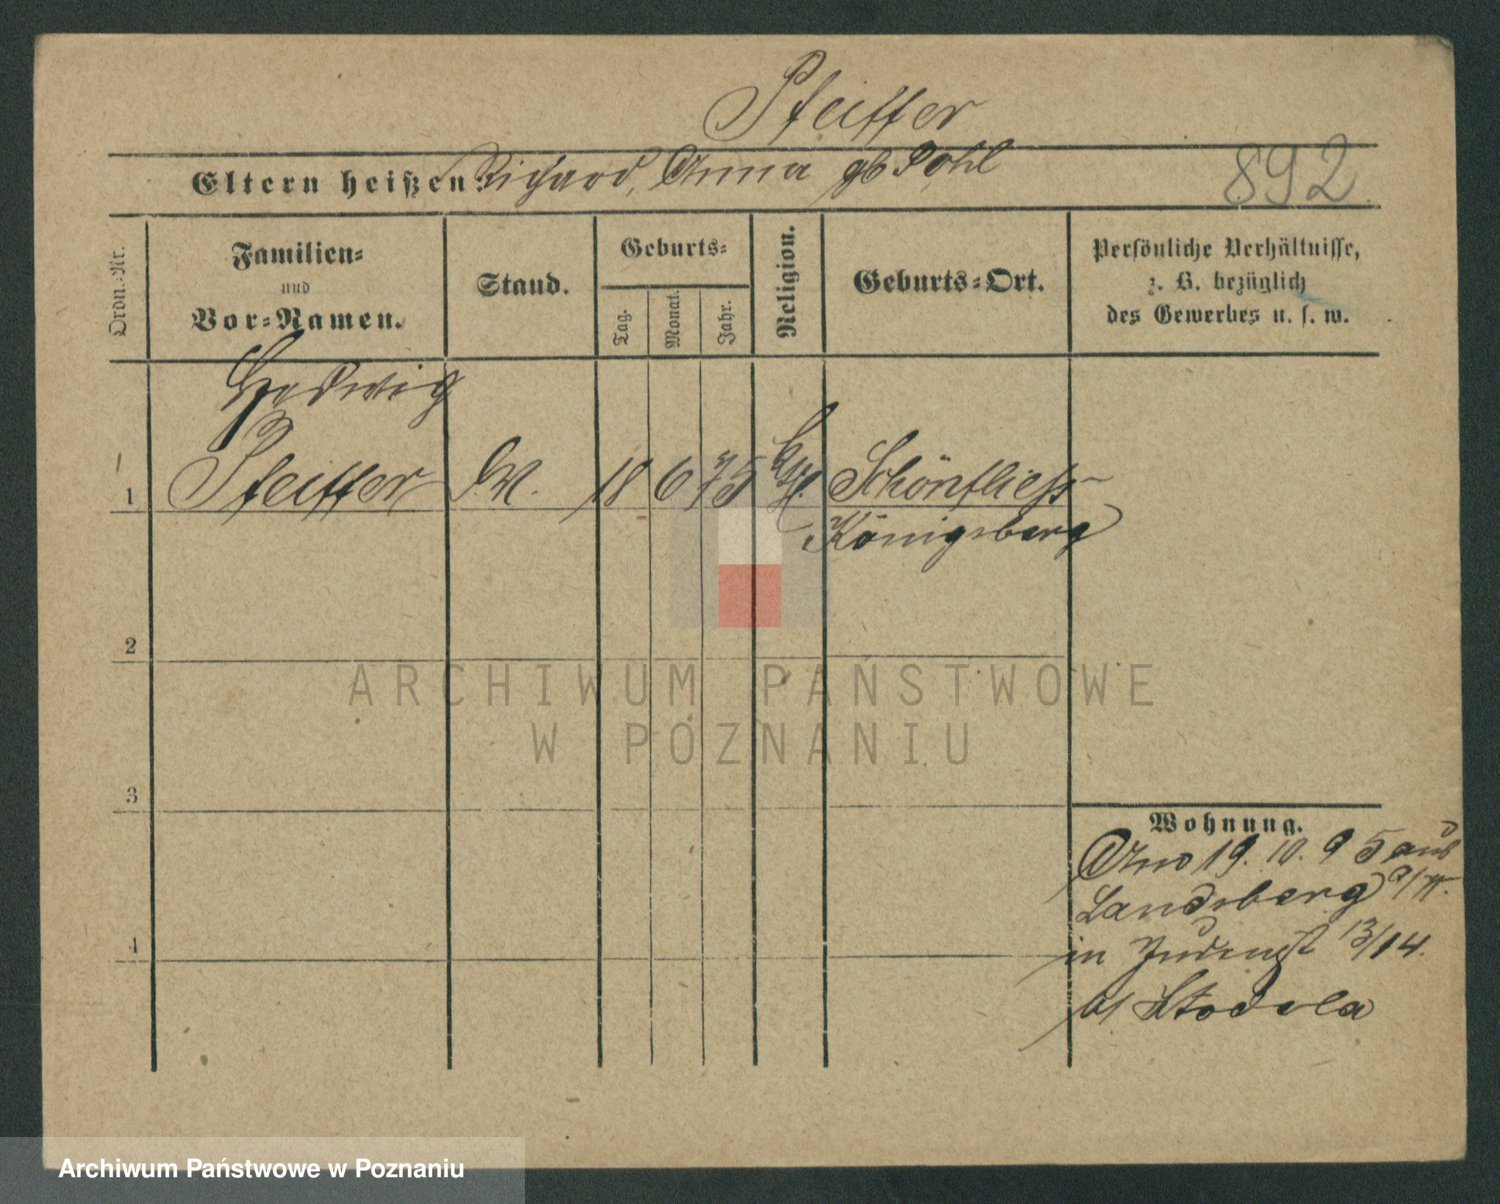 Pfeiffer
Eltern heißen: Richard, Anna gb Pohl
892
Ordn.-Nr.
Familien-
und
Vor-Namen.
Stand.
Geburts-
Tag.
Monat.
Jahr.
Religion.
Geburts-Ort.
Persönliche Verhältnisse,
z. B. bezüglich
des Gewerbes u. s. w.
Hedwig
1 Pfeiffer 18 6 75 Schönfliess
Königsberg
2
ARCHIWUM PAŃSTWOWE
W POZNANIU
3
Wohnung.
19. 10. 95 aus
Landsberg a/W.
4
in Judenst 13/14.
b/ Stodola
Archiwum Państwowe w Poznaniu